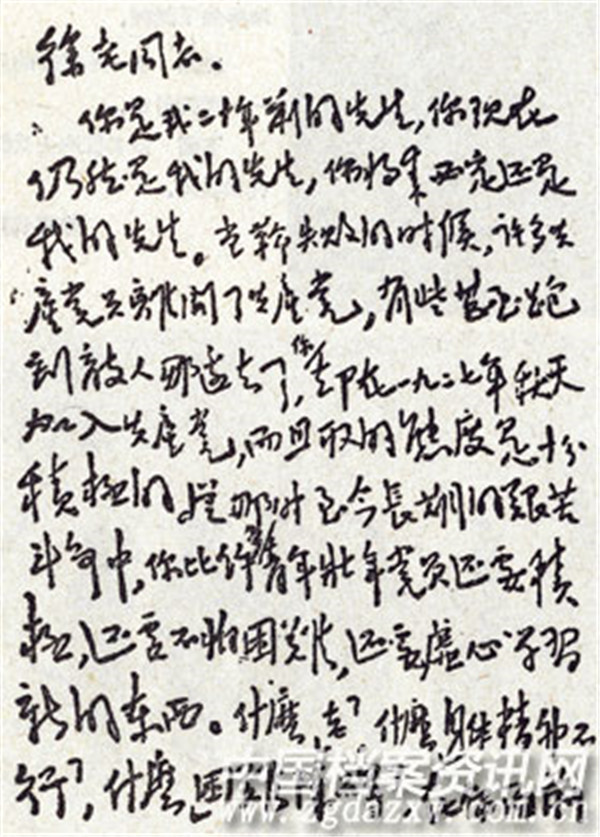 徐老同志。
你是我二十年前的先生，你现在
仍然是我的先生，你将来必定还是
我的先生。当革命失败的时候，许多共
产党员離開了共产党，有些甚至跑
到敵人那边去了，你却在一九二七年秋天
加入共产党，而且取的態度是十分
積極的。從那时至今長期的艰苦
斗争中，你比許多青年壮年党员还要積
極，还要不怕困难，还要虚心学习
新的东西。什麽“老”，什麽“身体精神不
行”，什麽“困难
中国档案资讯网
www.zgdazxw